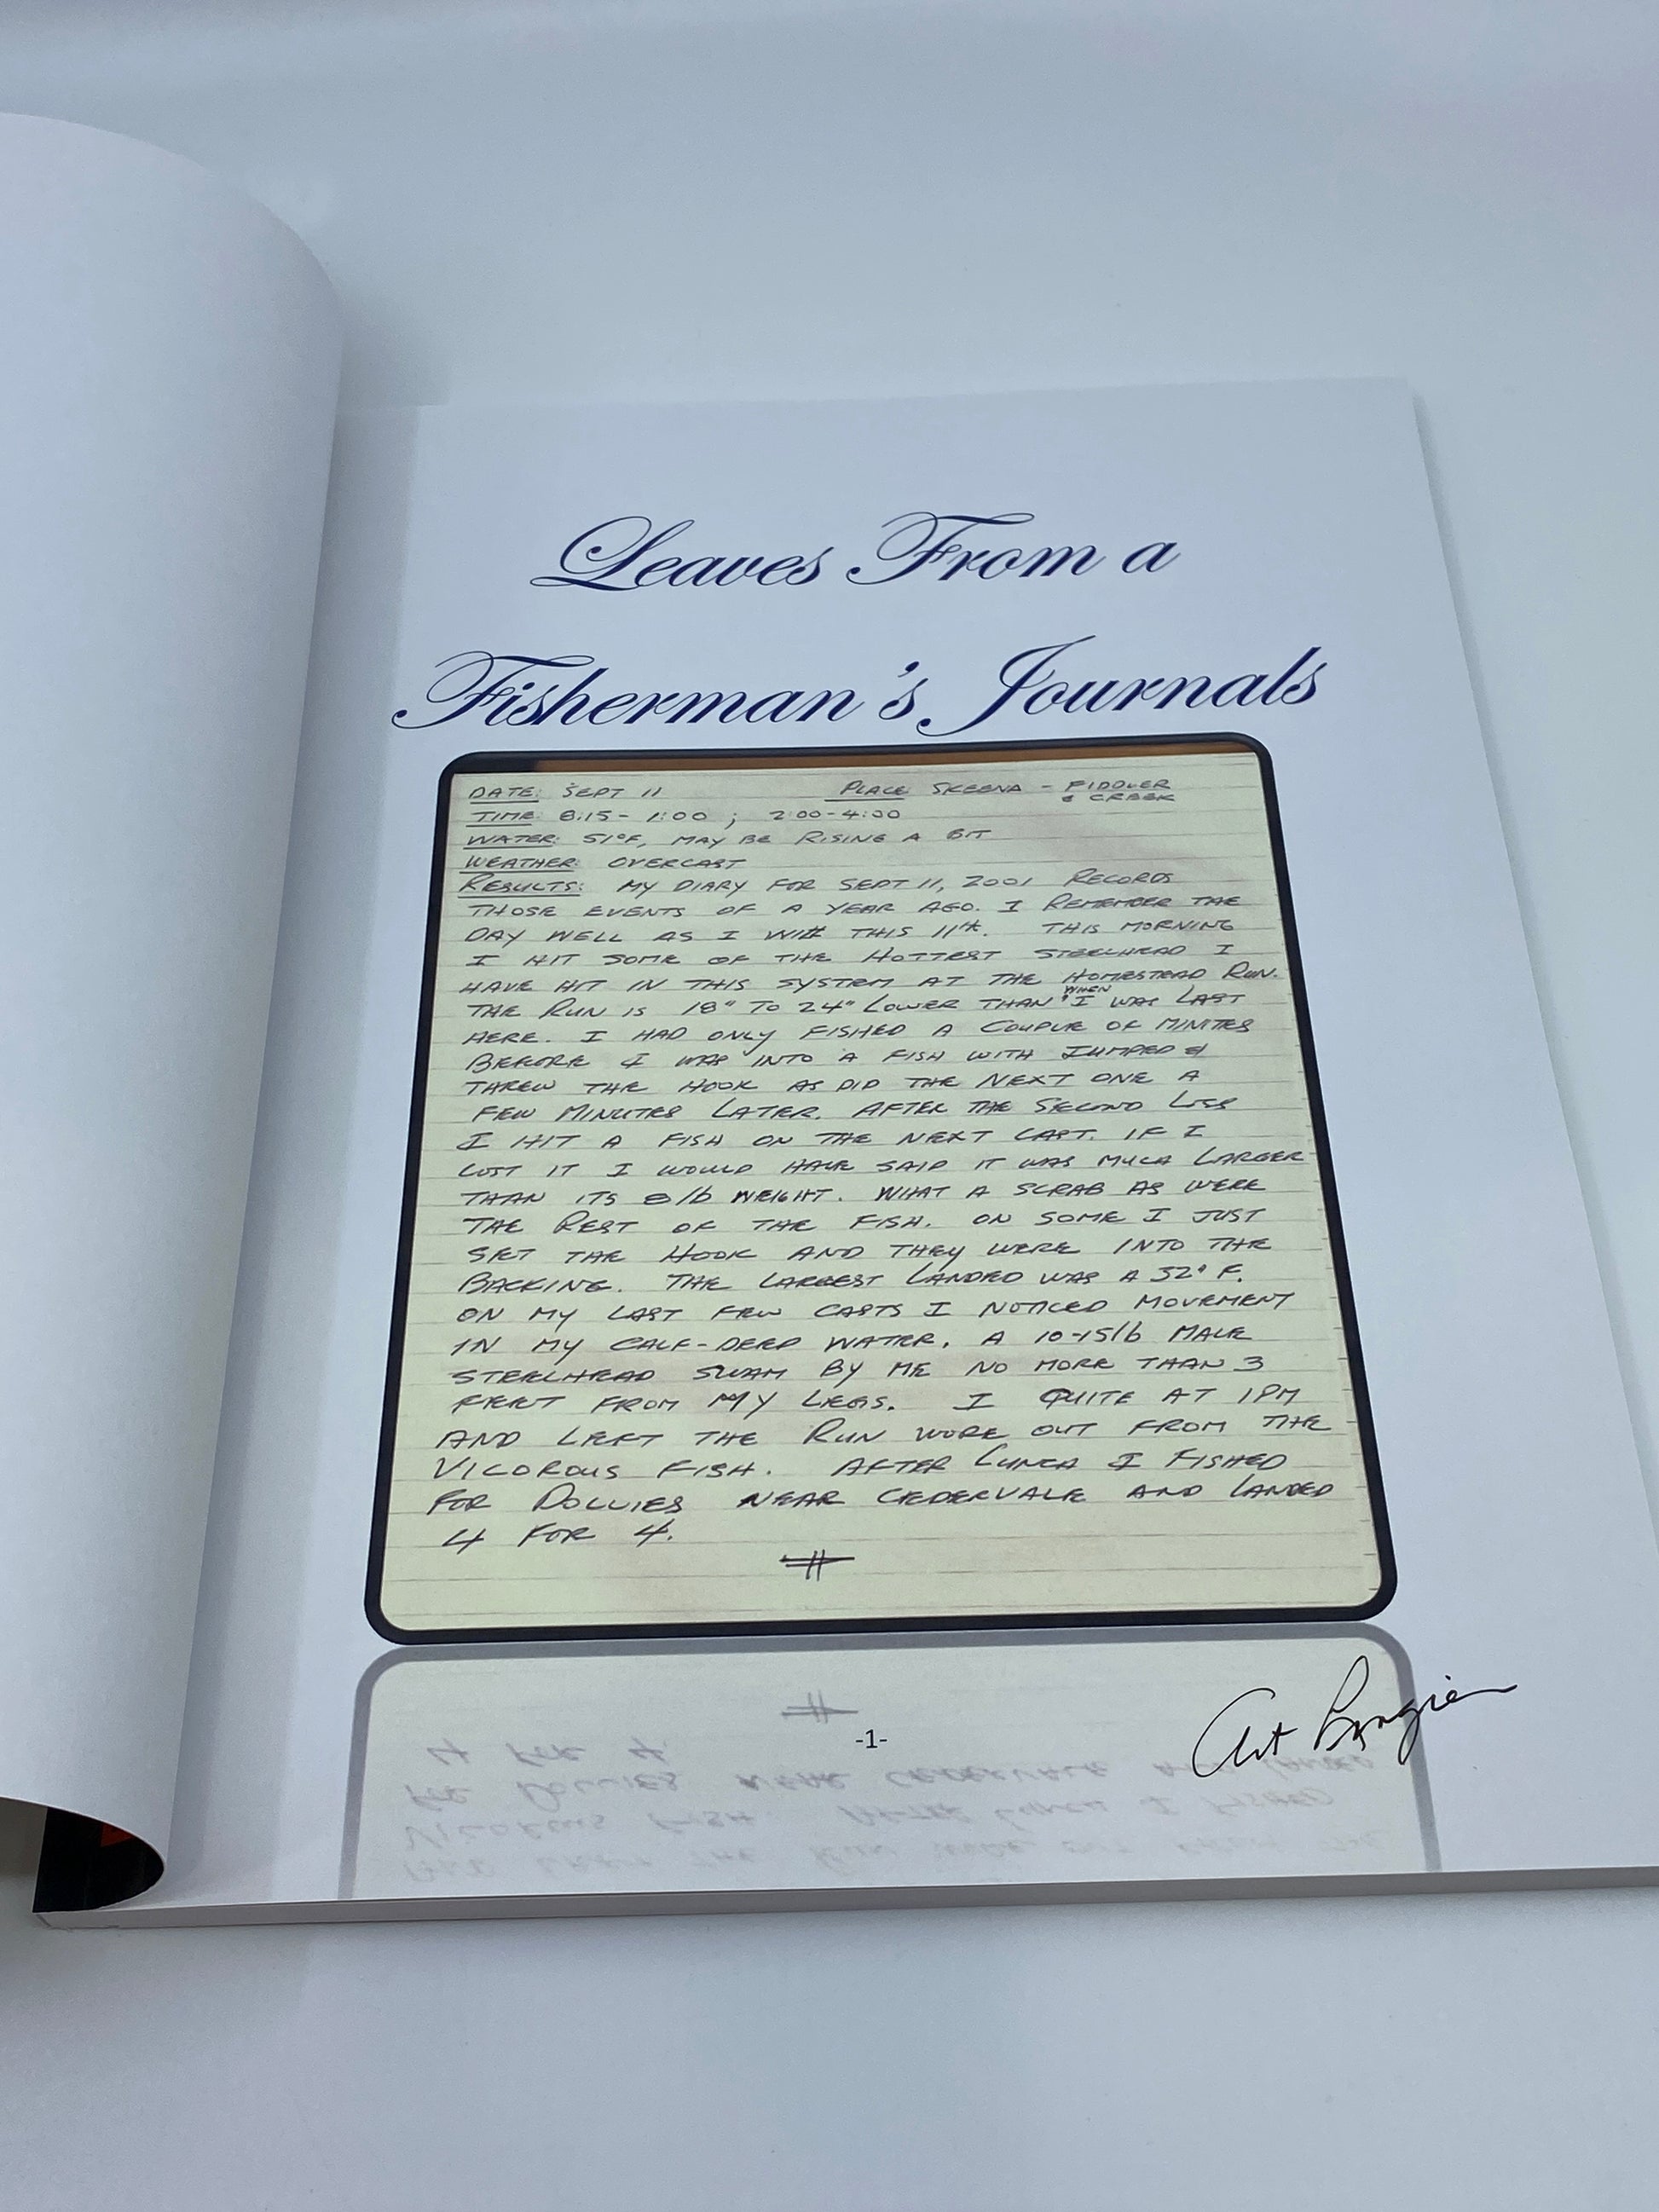 Leaves From a
Fisherman's Journals
DATE: SEPT 11 PLACE SKEENA - FIDDLER
& CREEK
TIME: 8:15 - 1:00 ; 2:00-4:00
WATER: 51°F, MAY BE RISING A BIT
WEATHER: OVERCAST
RESULTS: MY DIARY FOR SEPT 11, 2001 RECORDS
THOSE EVENTS OF A YEAR AGO. I REMEMBER THE
DAY WELL AS I WILL THIS 11th. THIS MORNING
I HIT SOME OF THE HOTTEST STEELHEAD I
HAVE HIT IN THIS SYSTEM AT THE HOMESTEAD RUN.
THE RUN IS 18" TO 24" LOWER THAN WHEN I WAS LAST
HERE. I HAD ONLY FISHED A COUPLE OF MINITES
BEFORE I WAS INTO A FISH WITH JUMPED &
THREW THE HOOK AS DID THE NEXT ONE A
FEW MINUTES LATER. AFTER THE SECOND LOSS
I HIT A FISH ON THE NEXT CAST. IF I
LOST IT I WOULD HAVE SAID IT WAS MUCH LARGER
THAN ITS 8 lb WEIGHT. WHAT A SCRAB AS WERE
THE REST OF THE FISH. ON SOME I JUST
SET THE HOOK AND THEY WERE INTO THE
BACKING. THE LARGEST LANDED WAS A 32" F.
ON MY LAST FEW CASTS I NOTICED MOVEMENT
IN MY CALF-DEEP WATER. A 10-15 lb MALE
STEELHEAD SWAM BY ME NO MORE THAN 3
FEET FROM MY LEGS. I QUITE AT 1PM
AND LEFT THE RUN WORE OUT FROM THE
VIGOROUS FISH. AFTER LUNCH I FISHED
FOR DOLLIES NEAR CEDERVALE AND LANDED
4 FOR 4.
-1-
Art